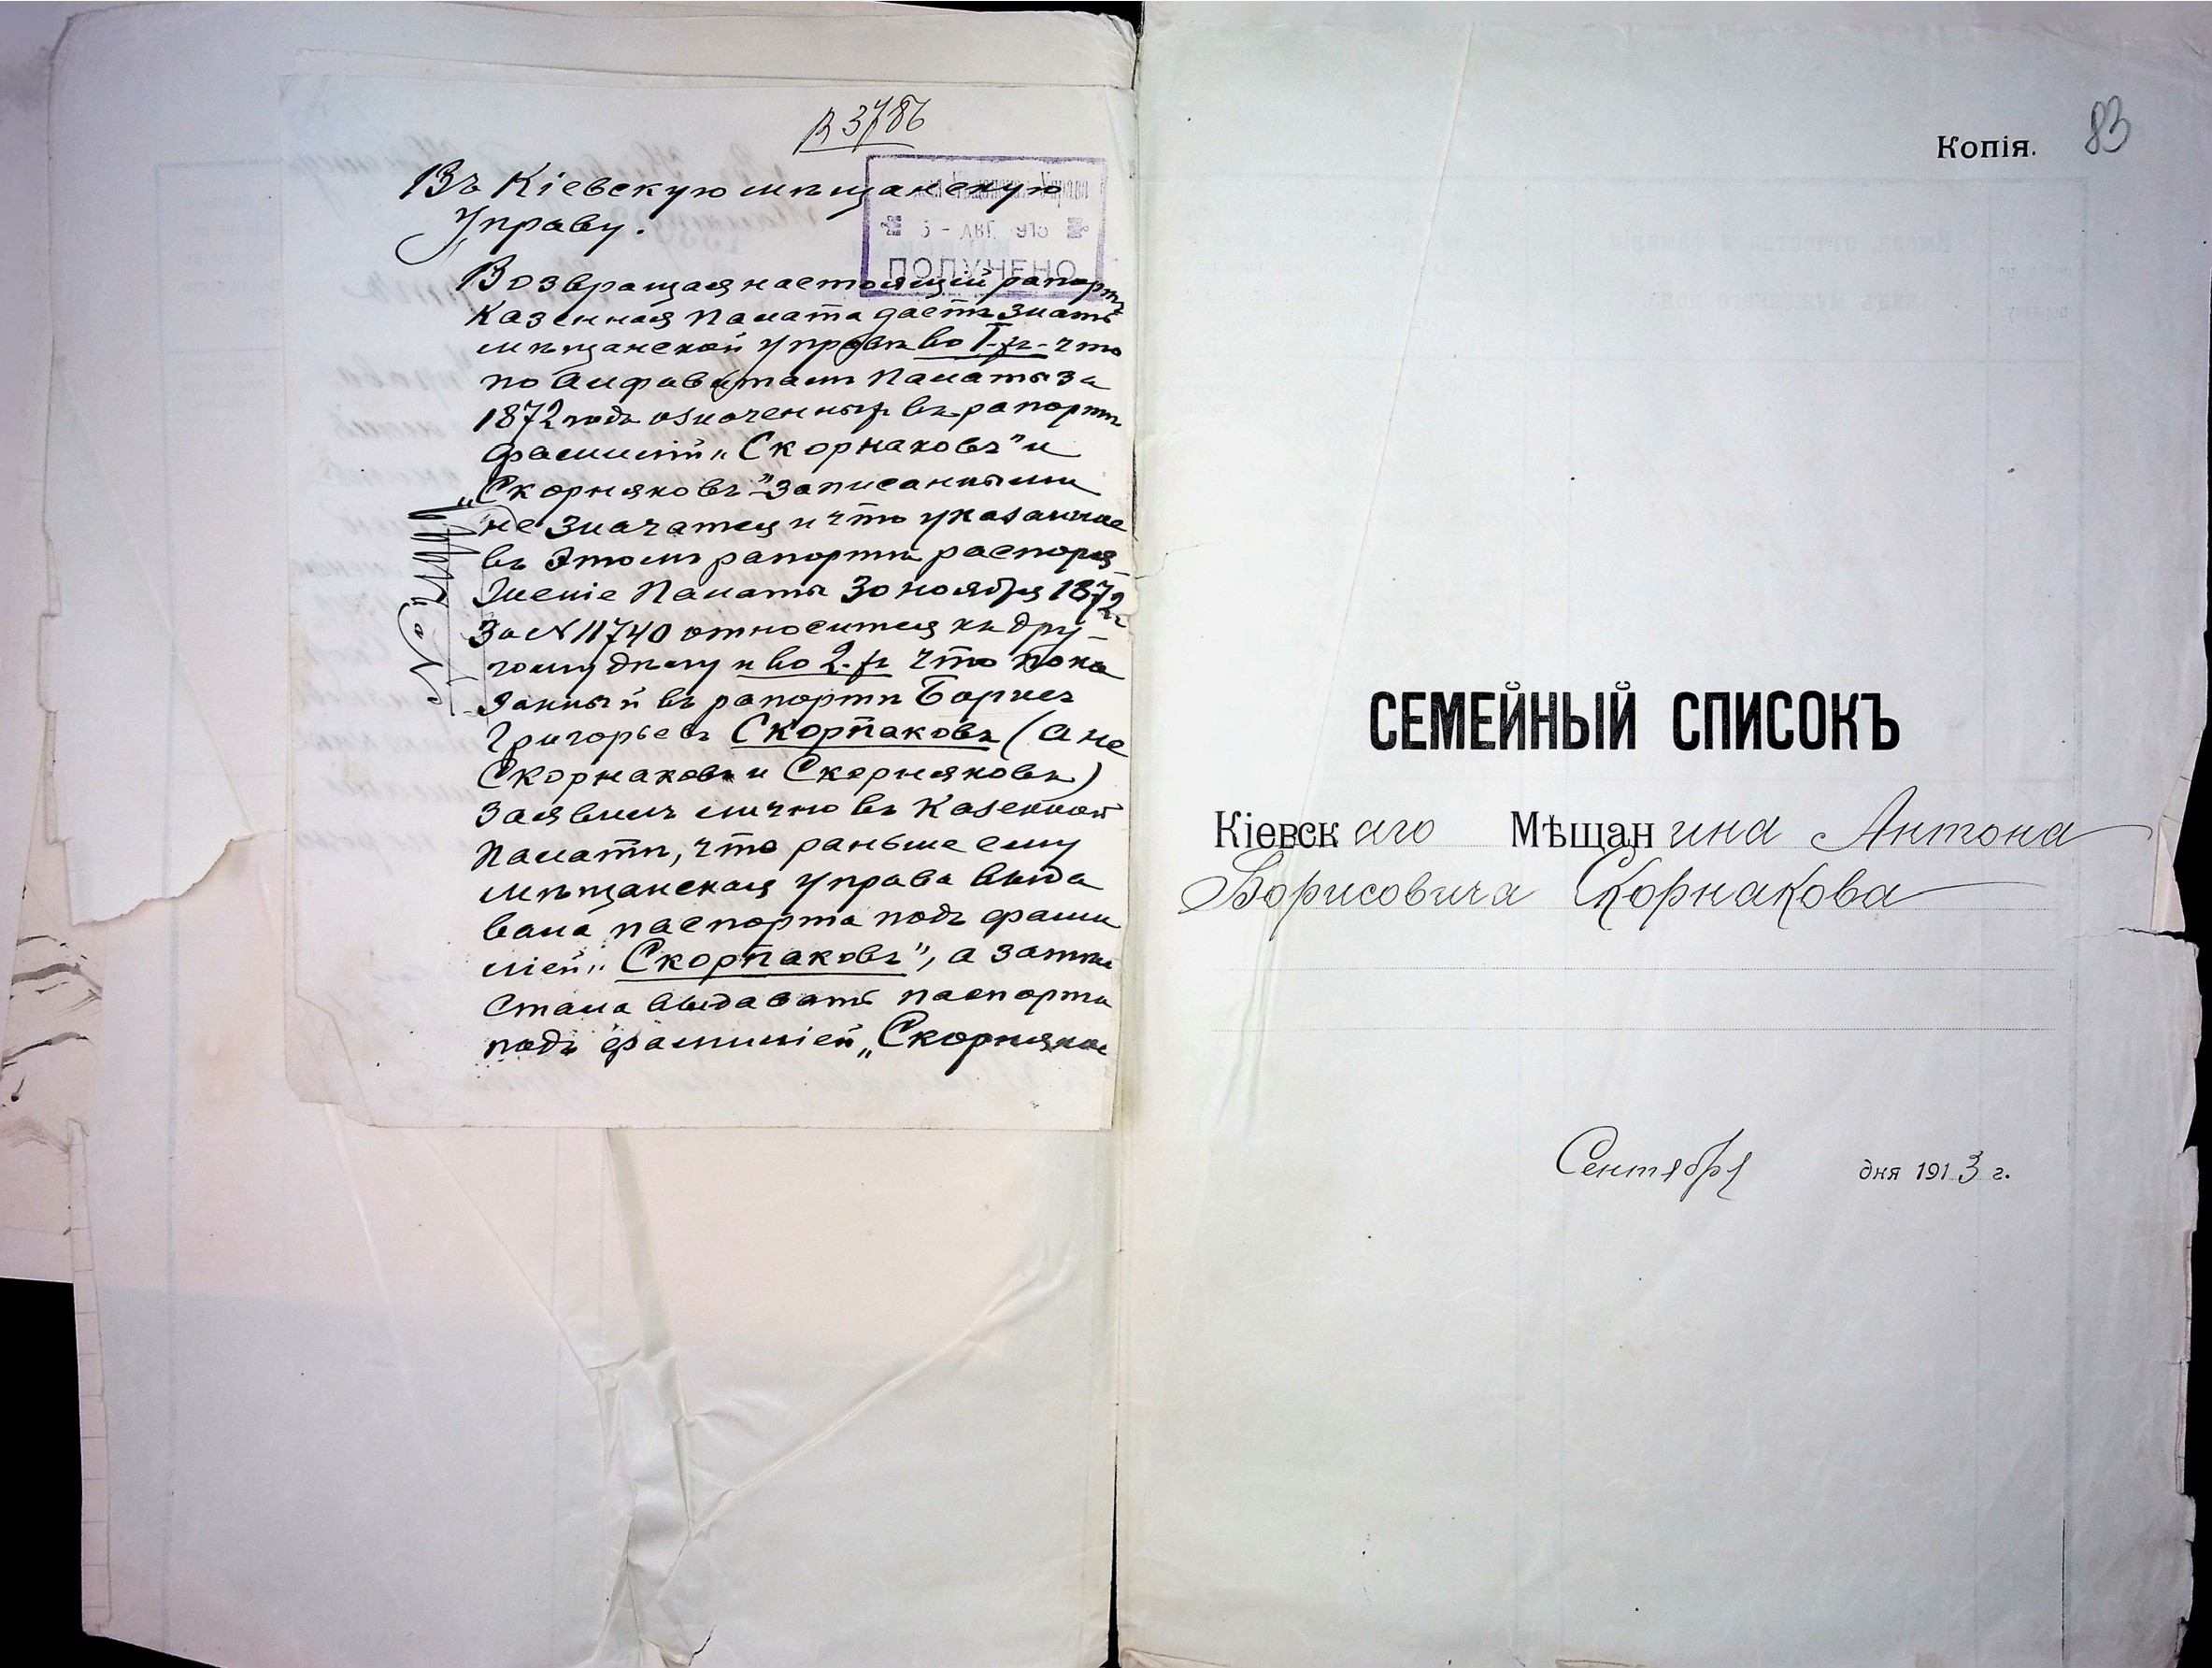 В 3786
Въ Кіевскую мѣщанскую
Управу.
Мѣщанская Управа
5 - АВГ. 1913
ПОЛУЧЕНО
Возвращая настоящій рапортъ
Казенная Палата даетъ знать
мѣщанской управѣ во 1-хъ что
по алфавитамъ Палаты за
1872 годъ означенныхъ въ рапортѣ
фамилій „Скорнаковъ" и
„Скорняковъ" записанными
не значатся и что указанное
въ этомъ рапортѣ распоря-
женіе Палаты 30 ноября 1872 г
за № 11740 относится къ дру-
гому дѣлу и во 2-хъ что пока
занный въ рапортѣ Борисъ
Григорьевъ Скорпаковъ (а не
Скорнаковъ и Скорняковъ)
заявилъ лично въ Казенной
Палатѣ, что раньше ему
мѣщанская управа выда
вала паспорта подъ фами
ліей „Скорпаковъ", а затѣмъ
стала выдавать паспорта
подъ фамиліей „Скорняков
Копія.
83
СЕМЕЙНЫЙ СПИСОКЪ
Кіевскаго Мѣщанина Антона
Борисовича Скорнакова
Сентября дня 1913 г.